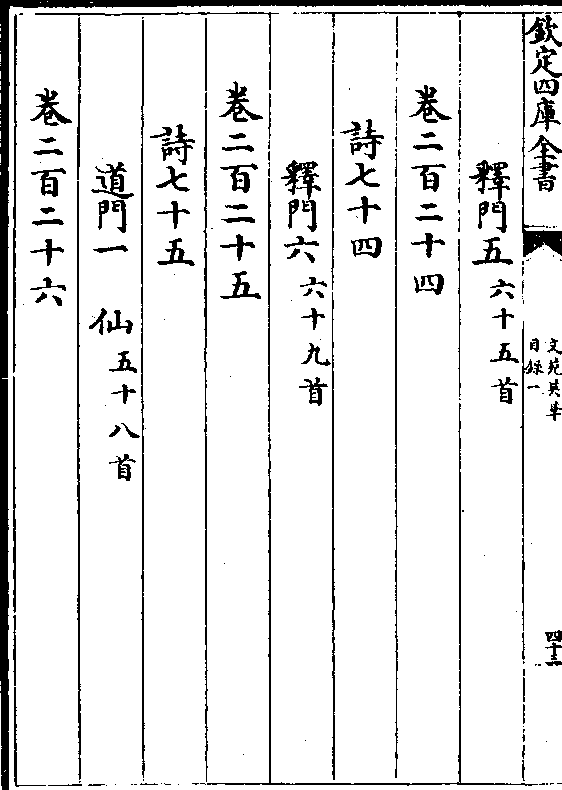 欽定四庫全書
文苑英華
目錄一
四十三
釋門五六十五首
卷二百二十四
詩七十四
釋門六六十九首
卷二百二十五
詩七十五
道門一 仙五十八首
卷二百二十六